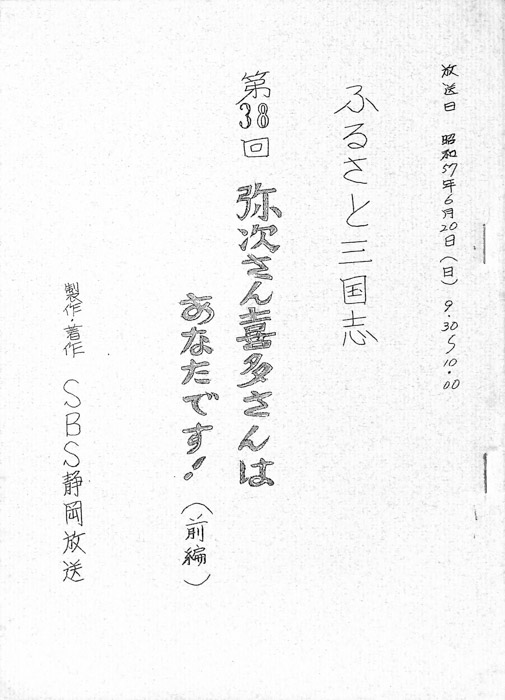 放送日 昭和57年6月20日(日) 9.30〜10.00
ふるさと三国志
第38回 弥次さん喜多さんは
あなたです!(前編)
製作・著作 SBS静岡放送